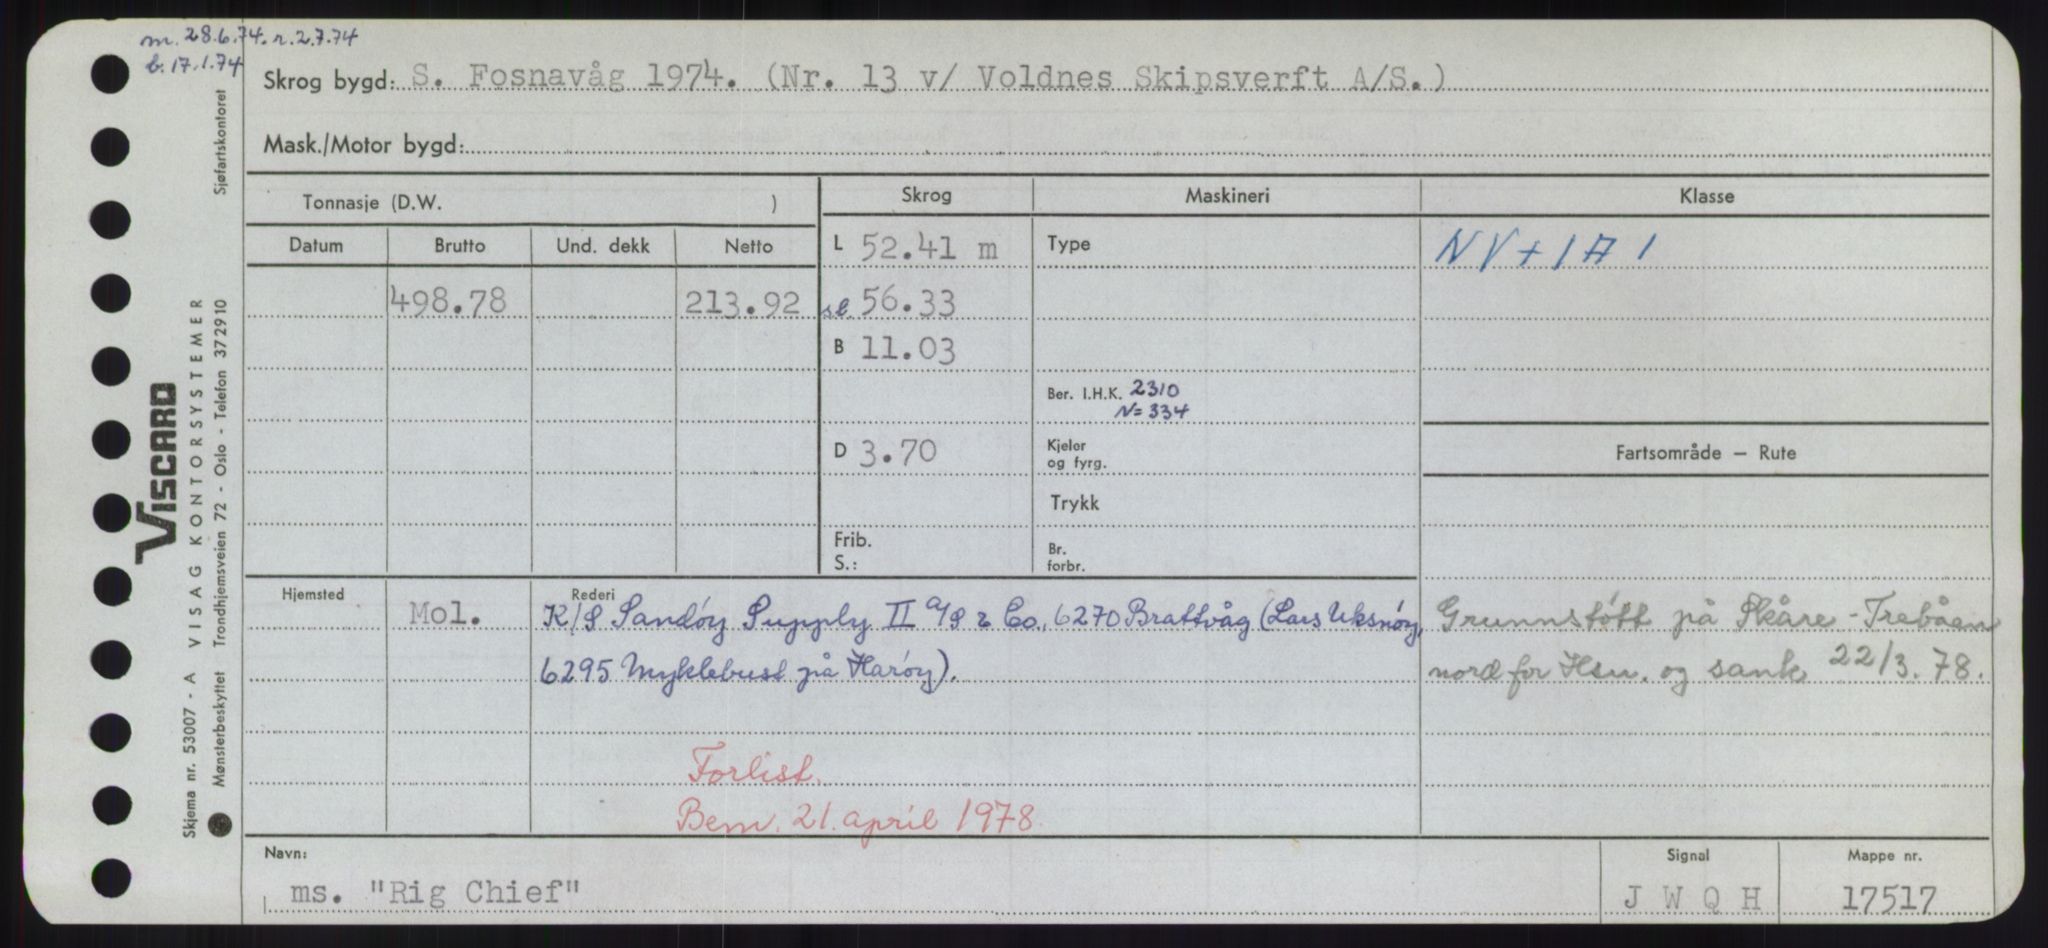 m. 28.6.74. r. 2.7.74
b. 17.1.74
Skrog bygd: S. Fosnavåg 1974. (Nr. 13 v/ Voldnes Skipsverft A/S.)
Mask./Motor bygd:
Tonnasje (D.W. )
Skrog Maskineri Klasse
Datum Brutto Und. dekk Netto
L 52.41 m Type NV + 1 A 1
498.78 213.92 sl. 56.33
B 11.03
Ber. I.H.K. 2310
N= 334
D 3.70 Kjeler
og fyrg.
Fartsområde — Rute
Trykk
Frib.
S.:
Br.
forbr.
Hjemsted Mol. Rederi K/S Sandöy Supply II A/S & Co., 6270 Brattvåg (Lars Uksnöy,
6295 Myklebust på Haröy).
Grunnstött på Skåre-Trebåen
nord for Hsn. og sank 22/3.78.
Forlist.
Bem. 21. april 1978.
Navn: Signal Mappe nr.
ms. "Rig Chief" J W Q H 17517
Skjema nr. 53007 - A VISAG KONTORSYSTEMER
VISCARD
Mønsterbeskyttet Trondhjemsveien 72 - Oslo - Telefon 372910
Sjøfartskontoret